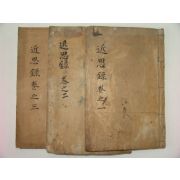 近思錄卷之一
近思錄卷之二
近思錄卷之三